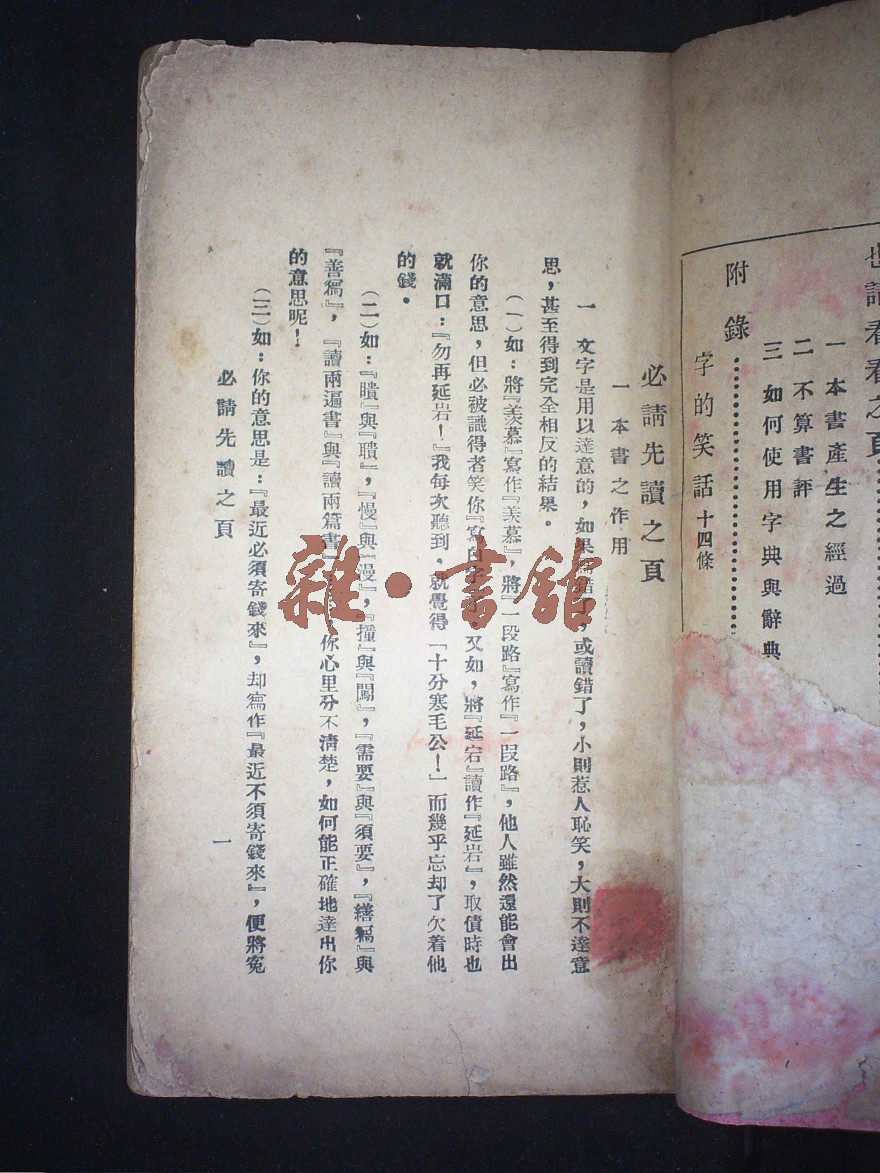 也請看看之頁
一 本書產生之經過
二 不算書評
三 如何使用字典與辭典
附錄
字的笑話 十四條
必請先讀之頁
一 本書之作用
一 文字是用以達意的,如果寫錯了,或讀錯了,小則惹人恥笑,大則不達意
思,甚至得到完全相反的結果。
(一)如:將『羨慕』寫作『羡慕』,將『一段路』寫作『一叚路』,他人雖然還能會出
你的意思,但必被識得者笑你『寫白字 又如,將『延宕』讀作『延岩』,取債時也
就滿口:『勿再延岩!』我每次聽到,就覺得「十分寒毛公!」而幾乎忘却了欠着他
的錢。
(二)如:『瞶』與『聵』,『慢』與『漫』,『撞』與『闖』,『需要』與『須要』,『繕稿』與
『善稿』,『讀兩遍書』與『讀兩篇書』 你心里分不清楚,如何能正確地達出你
的意思呢!
(三)如:你的意思是:『最近必須寄錢來』,却寫作『最近不須寄錢來』,便將冤
必請先讀之頁
一
雜·書館